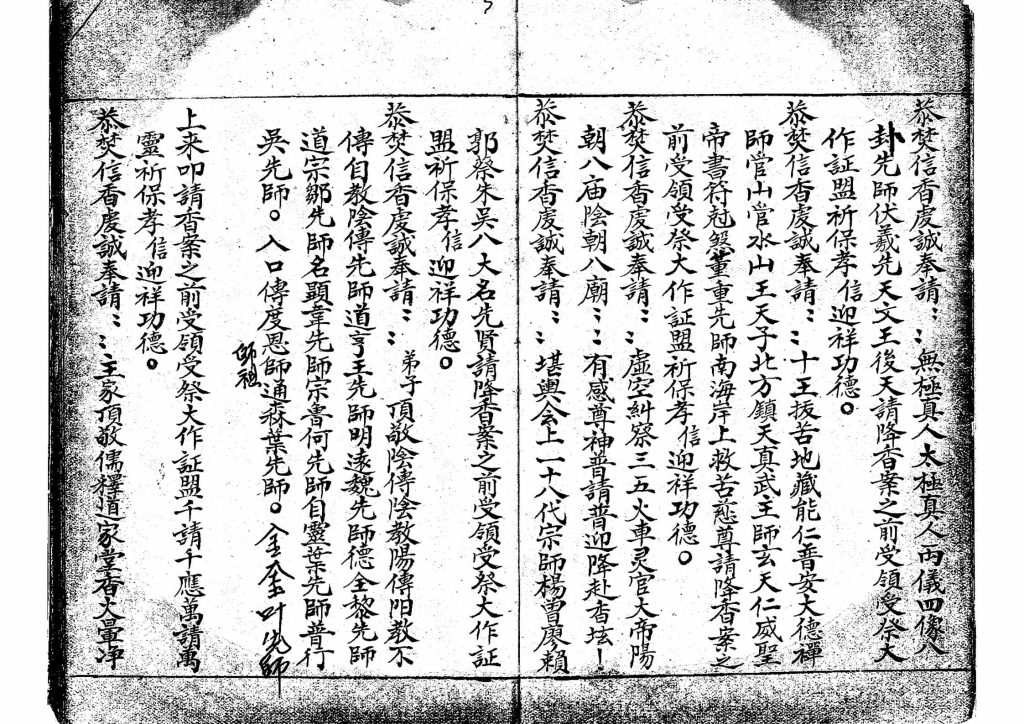 恭焚信香虔誠奉請：：無極真人太極真人両儀四像八
卦先師伏羲先天文王後天請降香案之前受領受祭大
作証盟祈保孝信迎祥功德。
恭焚信香虔誠奉請：：十王拔苦地藏能仁普安大德禪
師管山管水山王天子北方鎮天真武主師玄天仁威聖
帝書符冠煞董重先師南海岸上救苦慈尊請降香案之
前受領受祭大作証盟祈保孝信迎祥功德。
恭焚信香虔誠奉請：：虛空糾察三五火車灵官大帝陽
朝八庙陰朝八廟：：有感尊神普請普迎降赴香坛！
恭焚信香虔誠奉請：：堪輿会上一十八代宗師楊曾廖賴
郭蔡朱吳八大名先賢請降香案之前受領受祭大作証
盟祈保孝信迎祥功德。
恭焚信香虔誠奉請：：弟子頂敬陰傳陰教陽傳阳教不
傳自教陰傳先師道亨王先師明遠魏先師德全黎先師
道宗鄒先師名顕韋先師宗魯何先師自靈葉先師普行
吳先師。入口傳度恩師通森葉先師。金叶先師
師祖
上来叩請香案之前受領受祭大作証盟千請千應萬請萬
靈祈保孝信迎祥功德。
恭焚信香虔誠奉請：：主家頂敬儒釋道家堂香火暈净